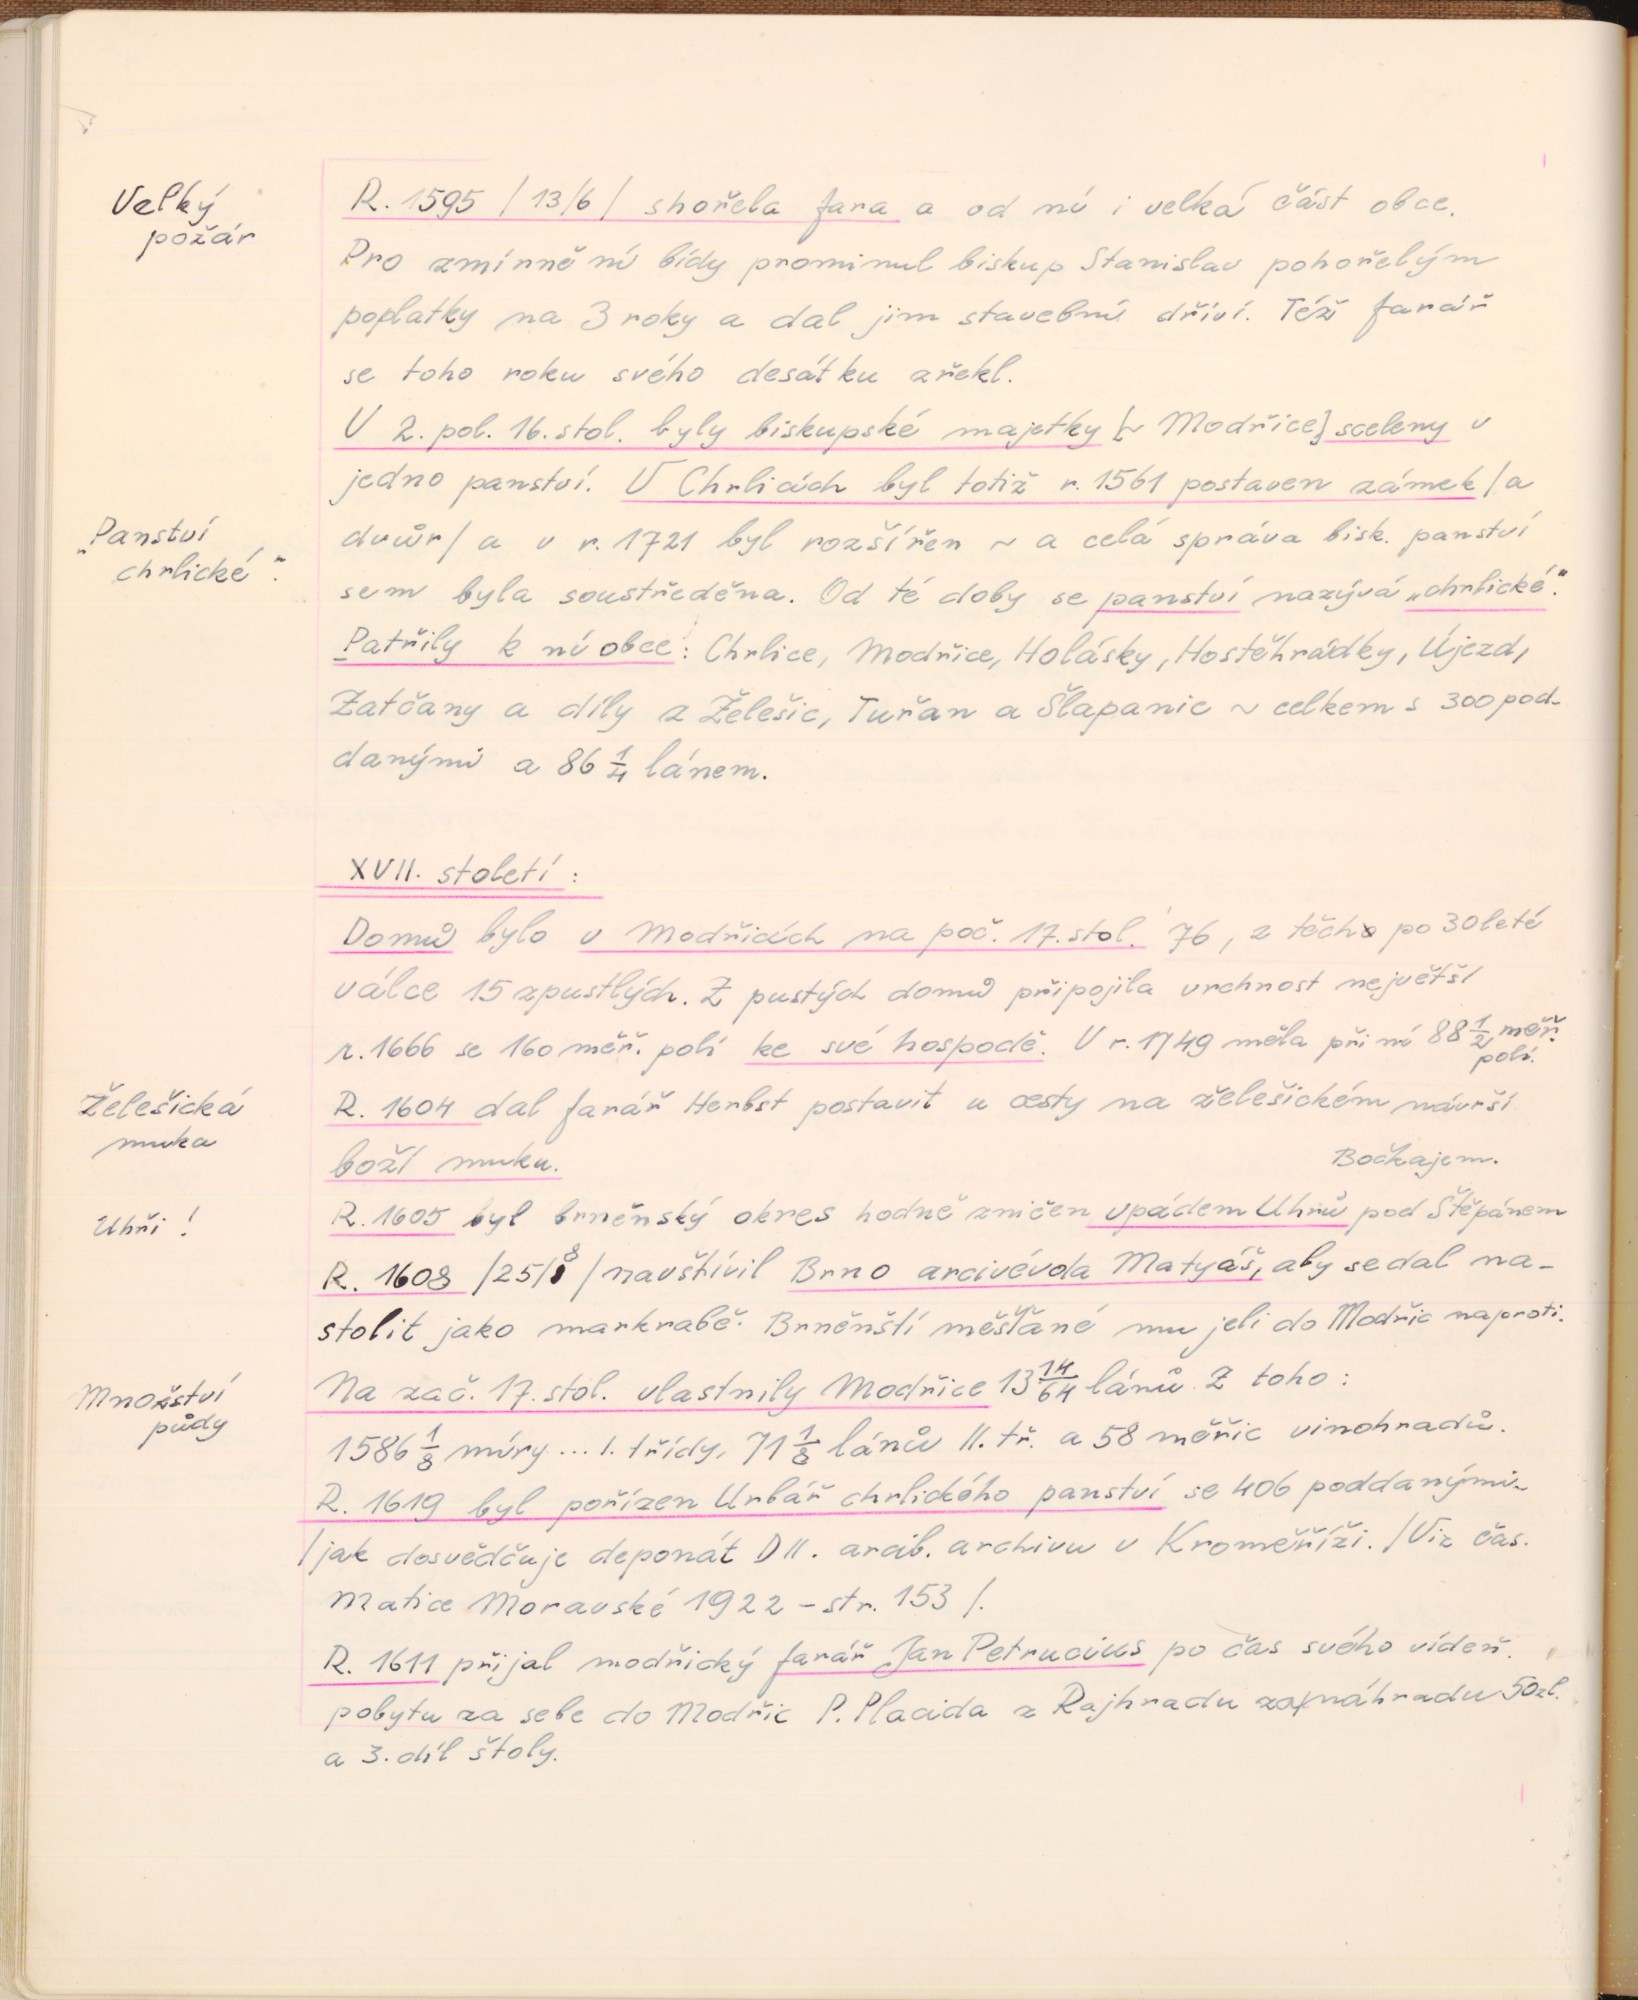 Velký
požár
R. 1595 / 13/6 / shořela fara a od ní i velká část obce.
Pro zmírnění bídy prominul biskup Stanislav pohořelým
poplatky na 3 roky a dal jim stavební dříví. Též farář
se toho roku svého desátku zřekl.
V 2. pol. 16. stol. byly biskupské majetky [~ Modřice] sceleny v
jedno panství. V Chrlicích byl totiž r. 1561 postaven zámek /a
„Panství
chrlické“.
dvůr/ a v r. 1721 byl rozšířen ~ a celá správa bisk. panství
sem byla soustředěna. Od té doby se panství nazývá „chrlické“.
Patřily k ní obce: Chrlice, Modřice, Holásky, Hostěhrádky, Újezd,
Zatčany a díly z Želešic, Tuřan a Šlapanic ~ celkem s 300 pod-
danými a 86 1/4 lánem.
XVII. století:
Domů bylo v Modřicích na poč. 17. stol. 76, z těch po 30leté
válce 15 zpustlých. Z pustých domů připojila vrchnost největší
r. 1666 se 160 měř. polí ke své hospodě. V r. 1749 měla při ní 88 1/2 měř.
polí.
Želešická
muka
R. 1604 dal farář Herbst postavit u cesty na želešickém návrší
boží muku.
Bočkajem.
Uhři!
R. 1605 byl brněnský okres hodně zničen vpádem Uhrů pod Štěpánem
R. 1608 /25/8 / navštívil Brno arcivévoda Matyáš, aby se dal na-
stolit jako markrabě. Brněnští měšťané mu jeli do Modřic naproti.
Množství
půdy
Na zač. 17. stol. vlastnily Modřice 13 14/64 lánů. Z toho:
1586 1/8 míry ... I. třídy, 71 1/8 lánů II. tř. a 58 měřic vinohradů.
R. 1619 byl pořízen Urbář chrlického panství se 406 poddanými-
/jak dosvědčuje deponát D II. arcib. archivu v Kroměříži. /Viz čas.
Matice Moravské 1922 - str. 153 /.
R. 1611 přijal modřický farář Jan Petrucius po čas svého vídeň.
pobytu za sebe do Modřic P. Placida z Rajhradu za náhradu 50 zl.
a 3. díl štoly.